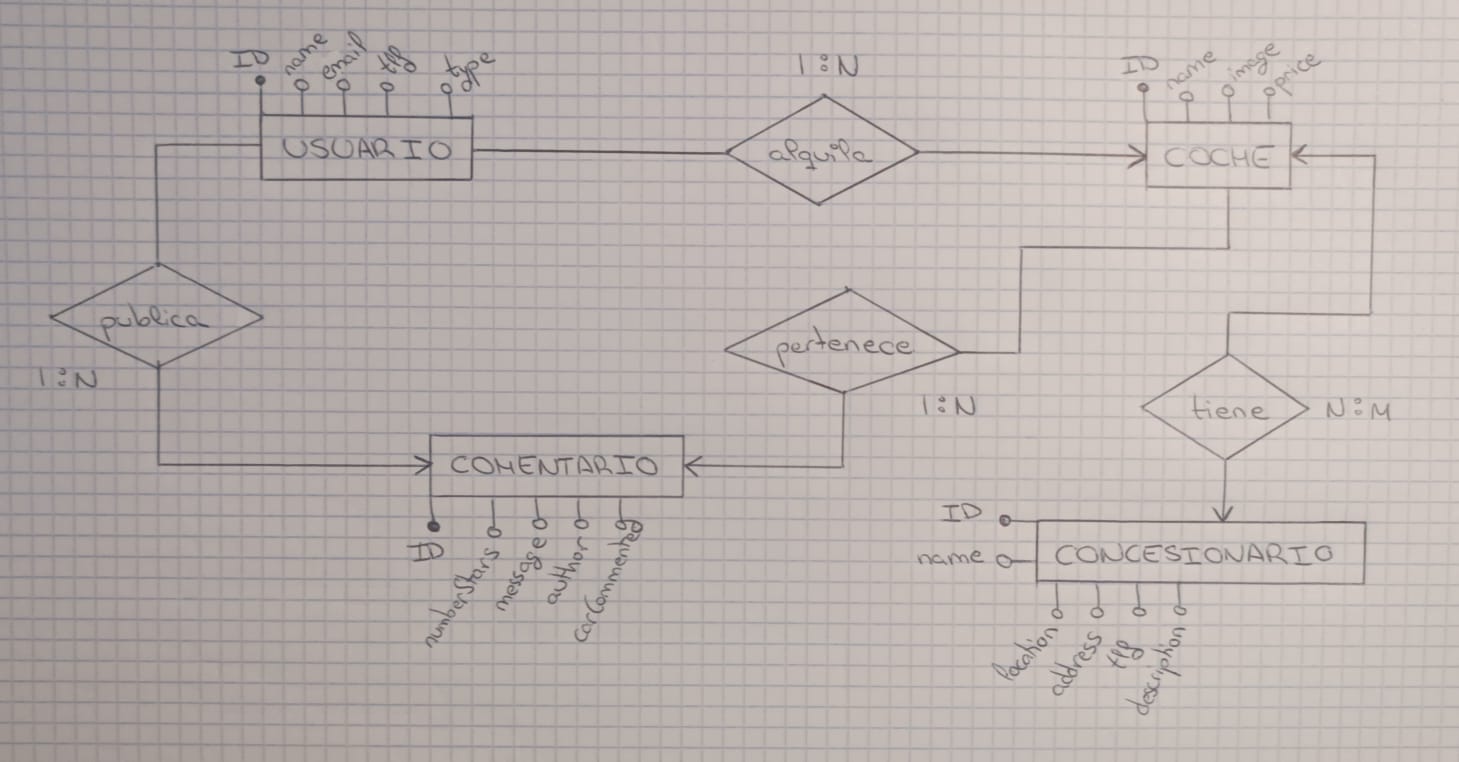 ID
name
email
tlf
type
USUARIO
1:N
alquila
ID
name
image
price
COCHE
publica
1:N
pertenece
1:N
tiene
N:M
COMENTARIO
ID
numberStars
message
author
carCommented
ID
name
CONCESIONARIO
location
address
tlf
description